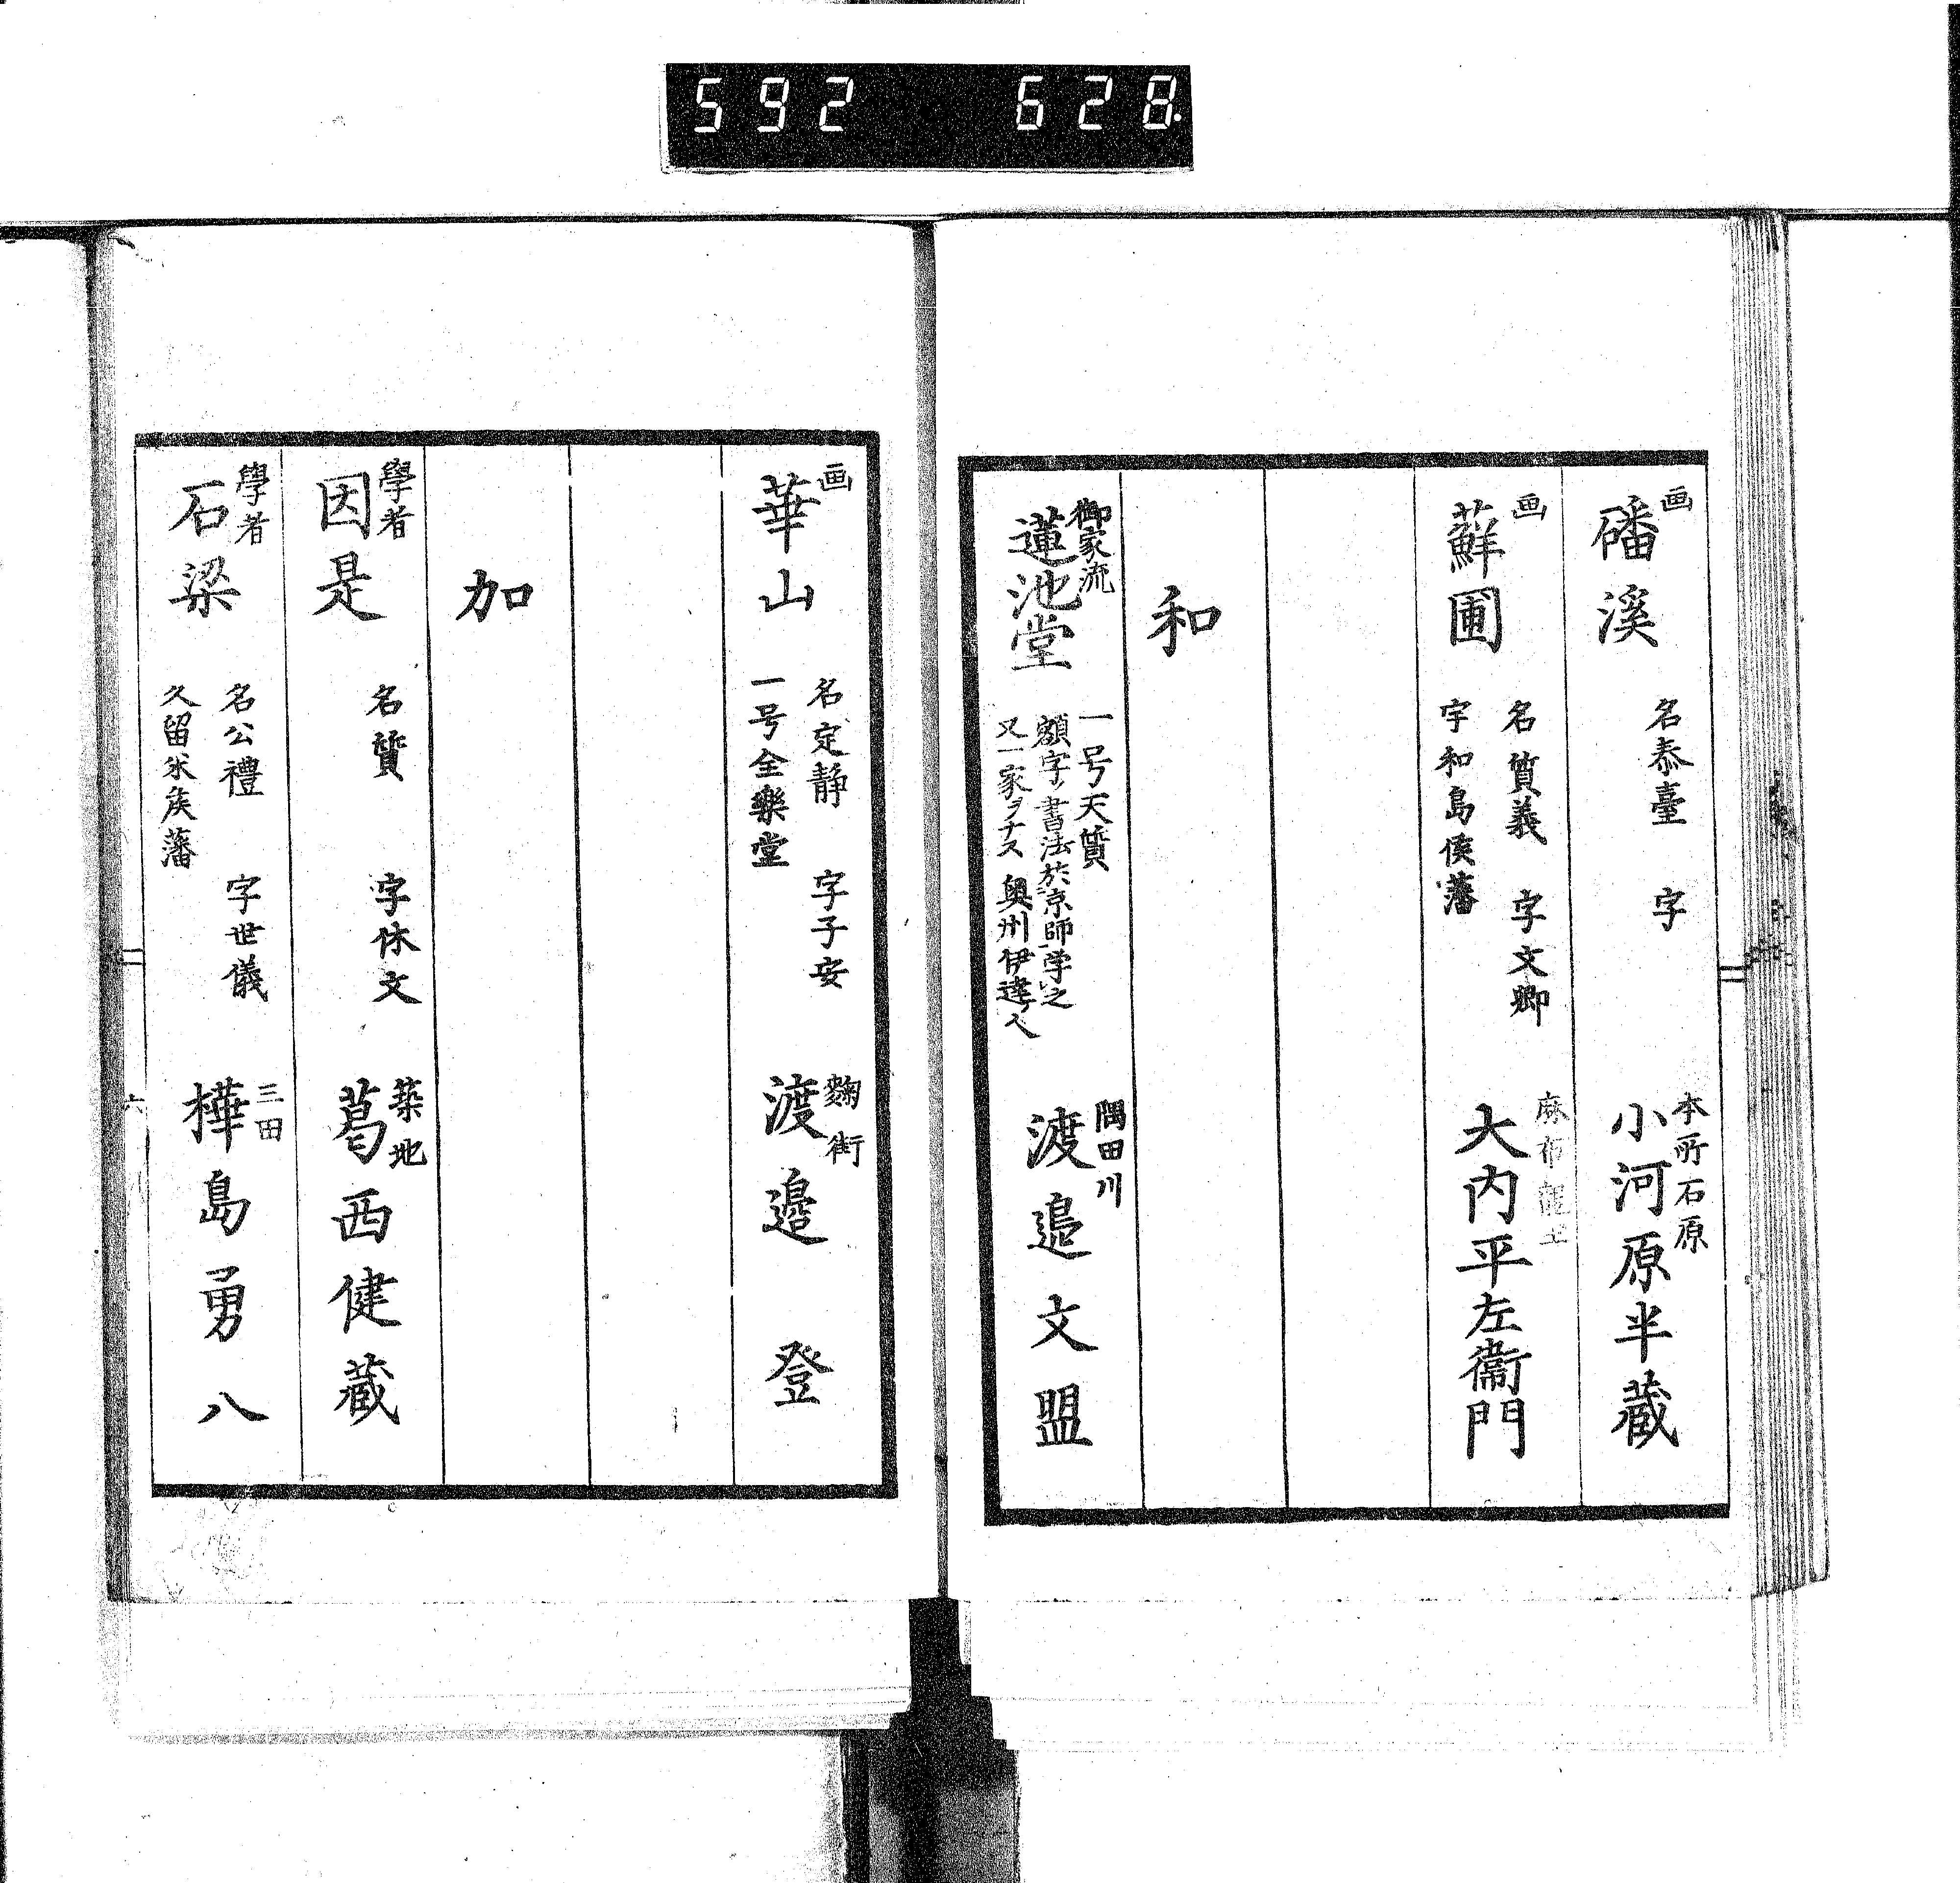 592 628
画
磻溪 名泰臺 字
本所石原
小河原半蔵
画
蘇圃 名質義 字文卿
宇和島侯藩
麻布龍土
大内平左衞門
和
御家流
蓮池堂 一号天質
額字ノ書法於京師学之
又一家ヲナス 奥州伊達ノ人
隅田川
渡邉文盟
画
華山 名定静 字子安
一号全樂堂
麴街
渡邉登
加
學者
因是 名質 字休文
築地
葛西健蔵
學者
石梁 名公禮 字世儀
久留米矦藩
三田
樺島勇八
六